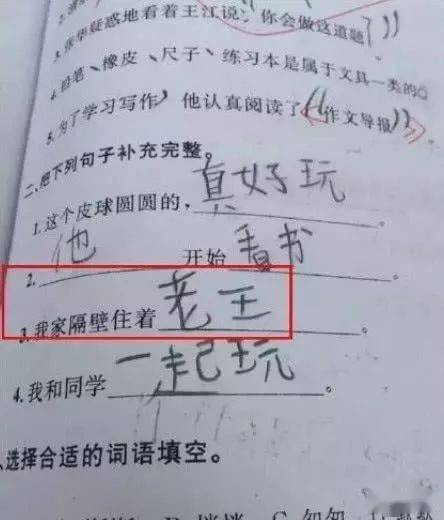 3.张华疑惑地看着王江说:你会做这道题
4.铅笔、橡皮、尺子、练习本是属于文具一类的。
5.为了学习写作,他认真阅读了《作文导报》
二.把下列句子补充完整。
1.这个皮球圆圆的,真好玩。
2.他开始看书。
3.我家隔壁住着老王。
4.我和同学一起玩。
选择合适的词语填空。